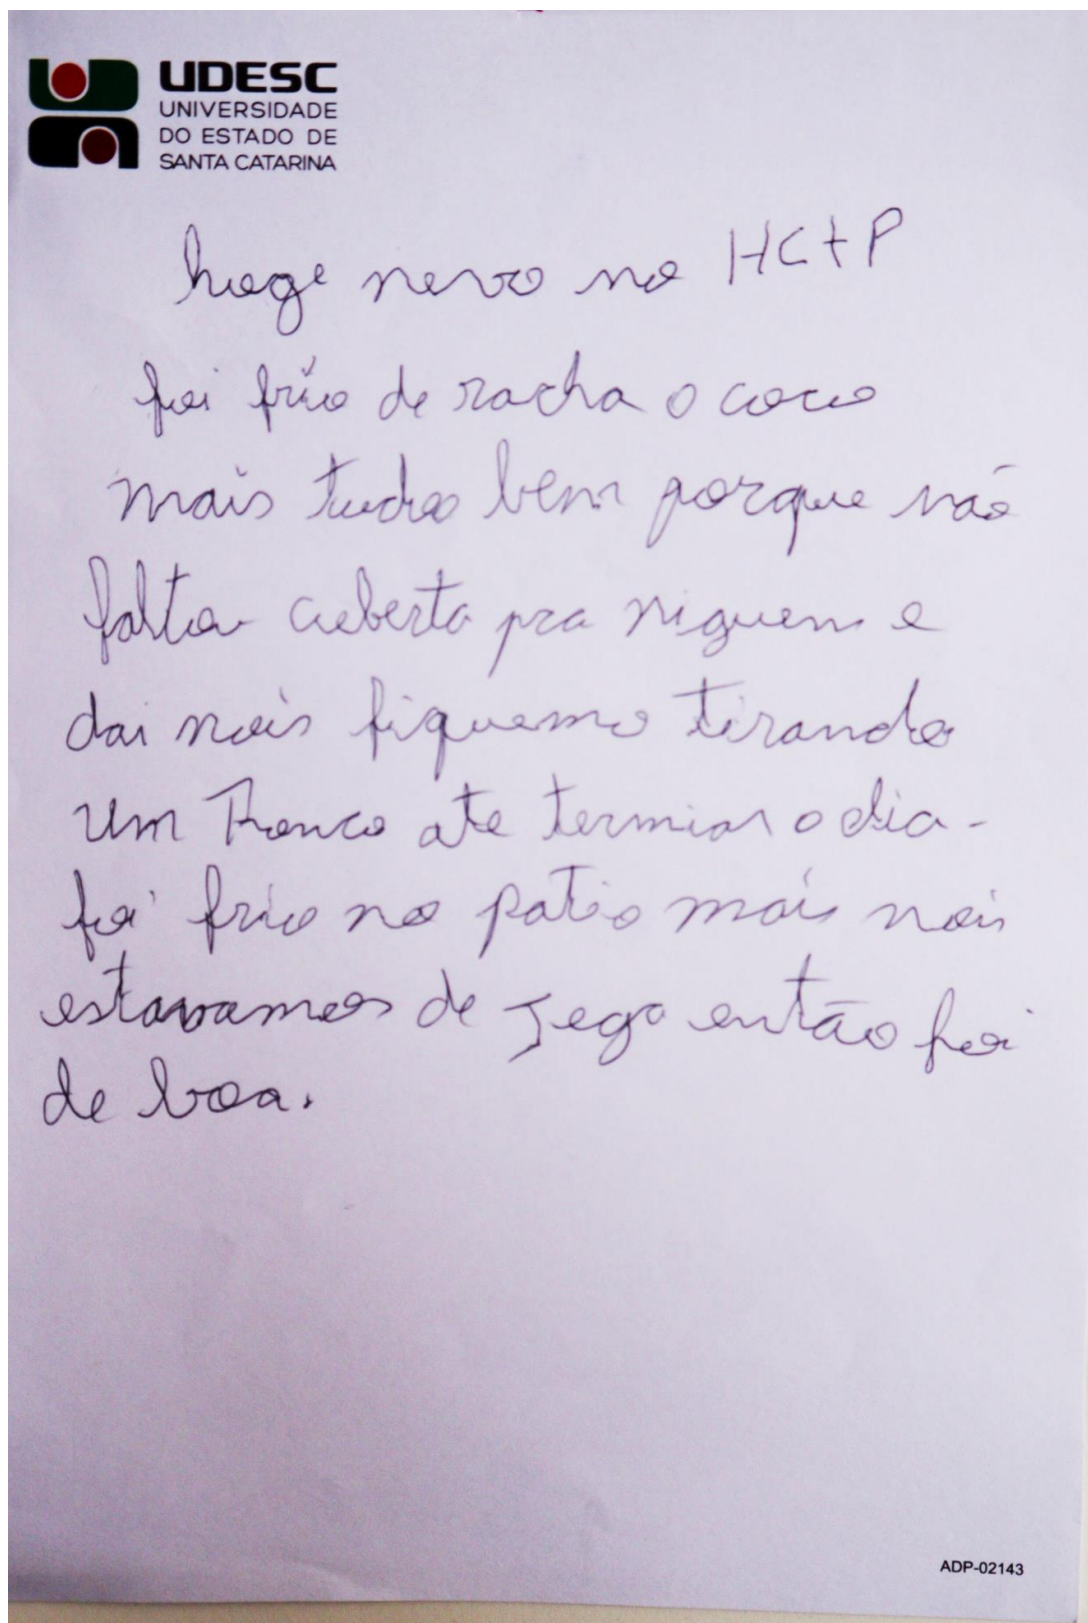 UDESC
UNIVERSIDADE
DO ESTADO DE
SANTA CATARINA
hoge nevo no HCtP
foi frio de racha o coco
mais tudo bem porque não
falta cuberta pra niguem e
dai nois fiquemo tirando
um Ronco ate termiar o dia -
foi frio no patio mais nois
estavamos de Jega então foi
de boa.
ADP-02143